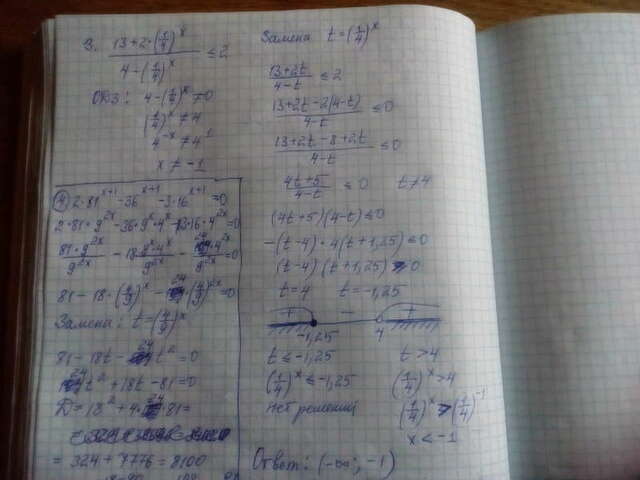 3. (13+2·(1/4)^x)/(4-(1/4)^x) ≤ 2
ОДЗ: 4-(1/4)^x ≠ 0
(1/4)^x ≠ 4
4^-x ≠ 4^1
x ≠ -1
④ 2·81^x+1 -36^x+1 -3·16^x+1 =0
2·81·9^2x -36·9^x·4^x -3·16·4^2x =0
81·9^2x/9^2x - 18·9^x·4^x/9^2x - 24·4^2x/9^2x =0
81-18·(4/9)^x - 24·(4/9)^2x =0
Замена: t=(4/9)^x
81-18t-24t²=0
24t²+18t-81=0
D=18²+4·24·81=
=324+7776=8100
Замена t=(1/4)^x
(13+2t)/(4-t) ≤ 2
(13+2t-2(4-t))/(4-t) ≤ 0
(13+2t-8+2t)/(4-t) ≤ 0
(4t+5)/(4-t) ≤ 0 t≠4
(4t+5)(4-t) ≤ 0
-(t-4)·4(t+1,25) ≤ 0
(t-4)(t+1,25) ≥ 0
t=4 t=-1,25
+ - +
-1,25 4
t ≤ -1,25 t > 4
(1/4)^x ≤ -1,25 (1/4)^x > 4
Нет решений (1/4)^x > (1/4)^-1
x < -1
Ответ: (-∞; -1)